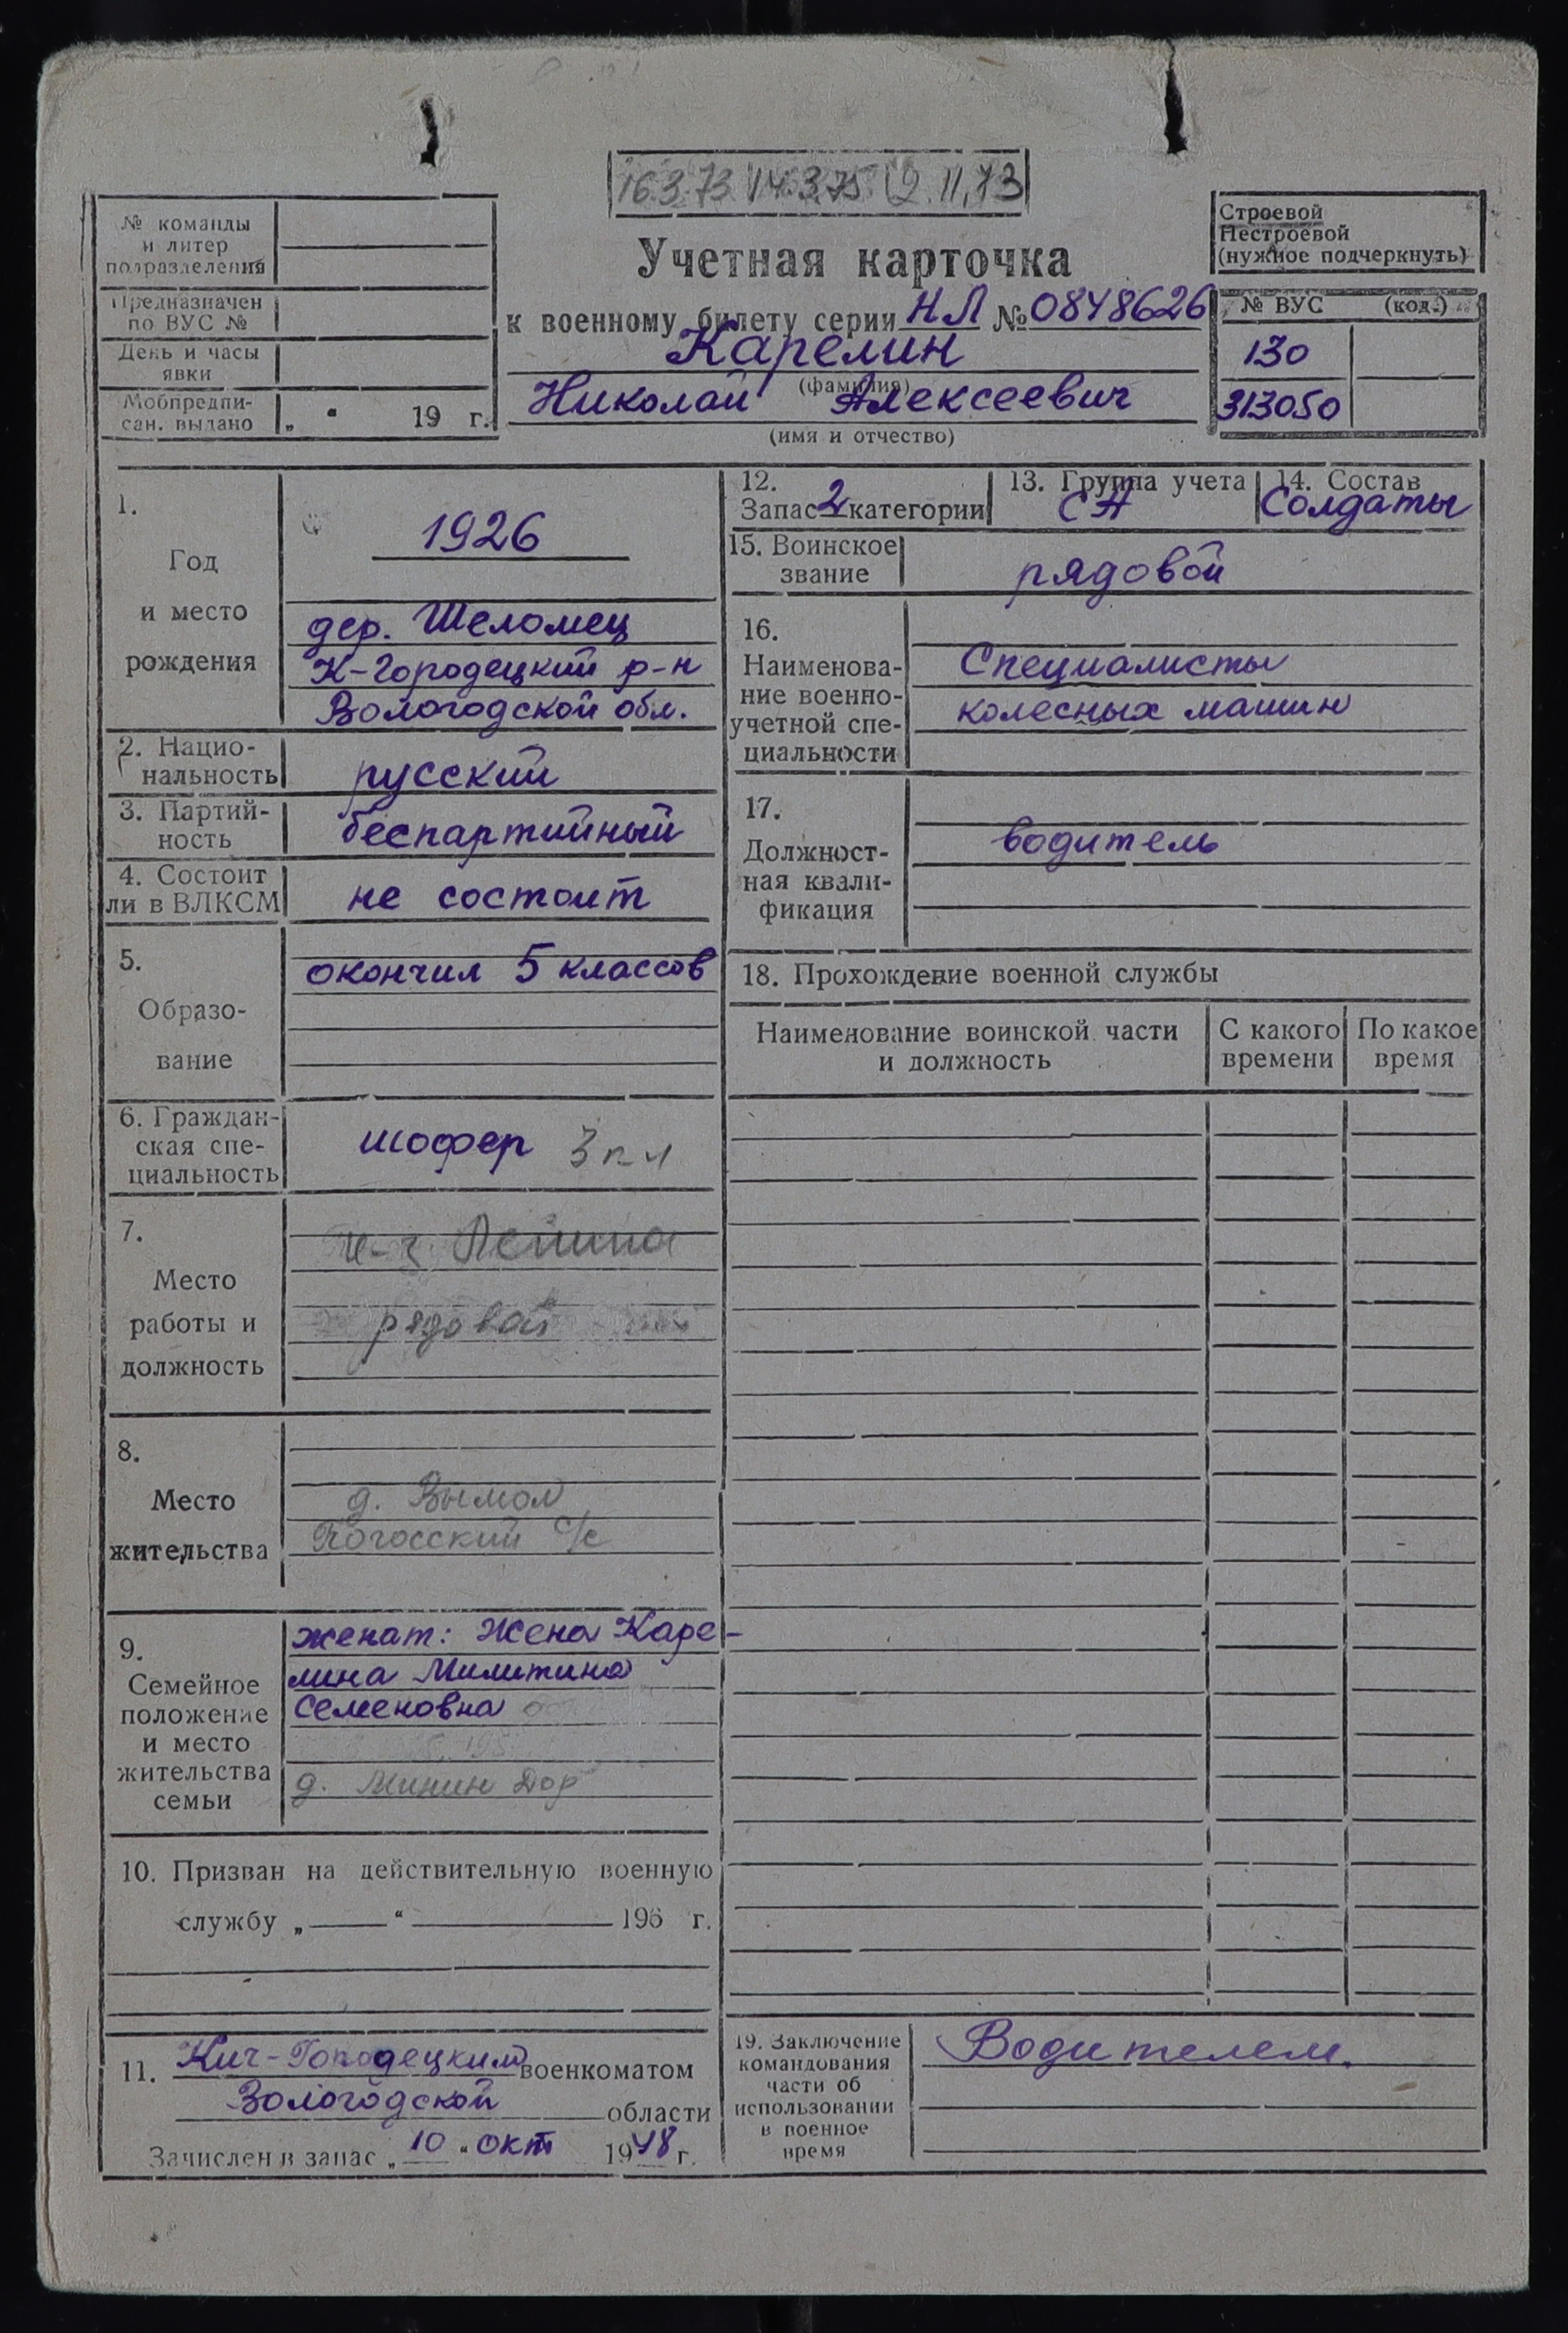 16.3.73 14.3.75 12.11.73
№ команды
и литер
подразделения
Предназначен
по ВУС №
День и часы
явки
Мобпредпи-
сан. выдано „ “ 19 г.
Учетная карточка
к военному билету серии НЛ № 0848626
Карелин
(фамилия)
Николай Алексеевич
(имя и отчество)
Строевой
Нестроевой
(нужное подчеркнуть)
№ ВУС (код.)
130
313050
1.
Год
и место
рождения
1926
дер. Шеломец
К-Городецкий р-н
Вологодской обл.
2. Нацио-
нальность русский
3. Партий-
ность беспартийный
4. Состоит
ли в ВЛКСМ не состоит
5.
Образо-
вание
окончил 5 классов
6. Граждан-
ская спе-
циальность
шофер 3 кл
7.
Место
работы и
должность
к-з Ленина
рядовой
8.
Место
жительства
д. Вымол
Погосский с/с
9.
Семейное
положение
и место
жительства
семьи
женат: Жена Каре-
лина Милитина
Семеновна
д. Минин Дор
10. Призван на действительную военную
службу „ “ 196 г.
11. Кич-Городецким военкоматом
Вологодской области
Зачислен в запас „10“ окт 1948 г.
12.
Запас 2 категории
13. Группа учета
СА
14. Состав
Солдаты
15. Воинское
звание
рядовой
16.
Наименова-
ние военно-
учетной спе-
циальности
Специалисты
колесных машин
17.
Должност-
ная квали-
фикация
водитель
18. Прохождение военной службы
Наименование воинской части
и должность
С какого
времени
По какое
время
19. Заключение
командования
части об
использовании
в военное
время
Водителем.